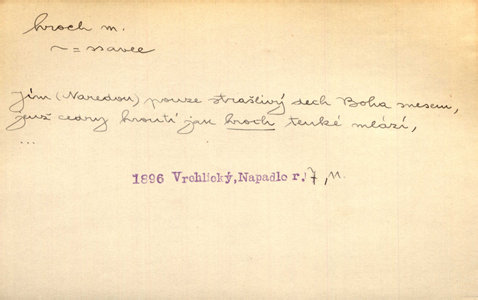 hroch m.
~ = ssavec
Jím (Naredou) pouze strašlivý dech Boha snesen,
jenž cedry kroutí jak hroch tenké mlází,
...
1896 Vrchlický, Napadlo r. 17, n.